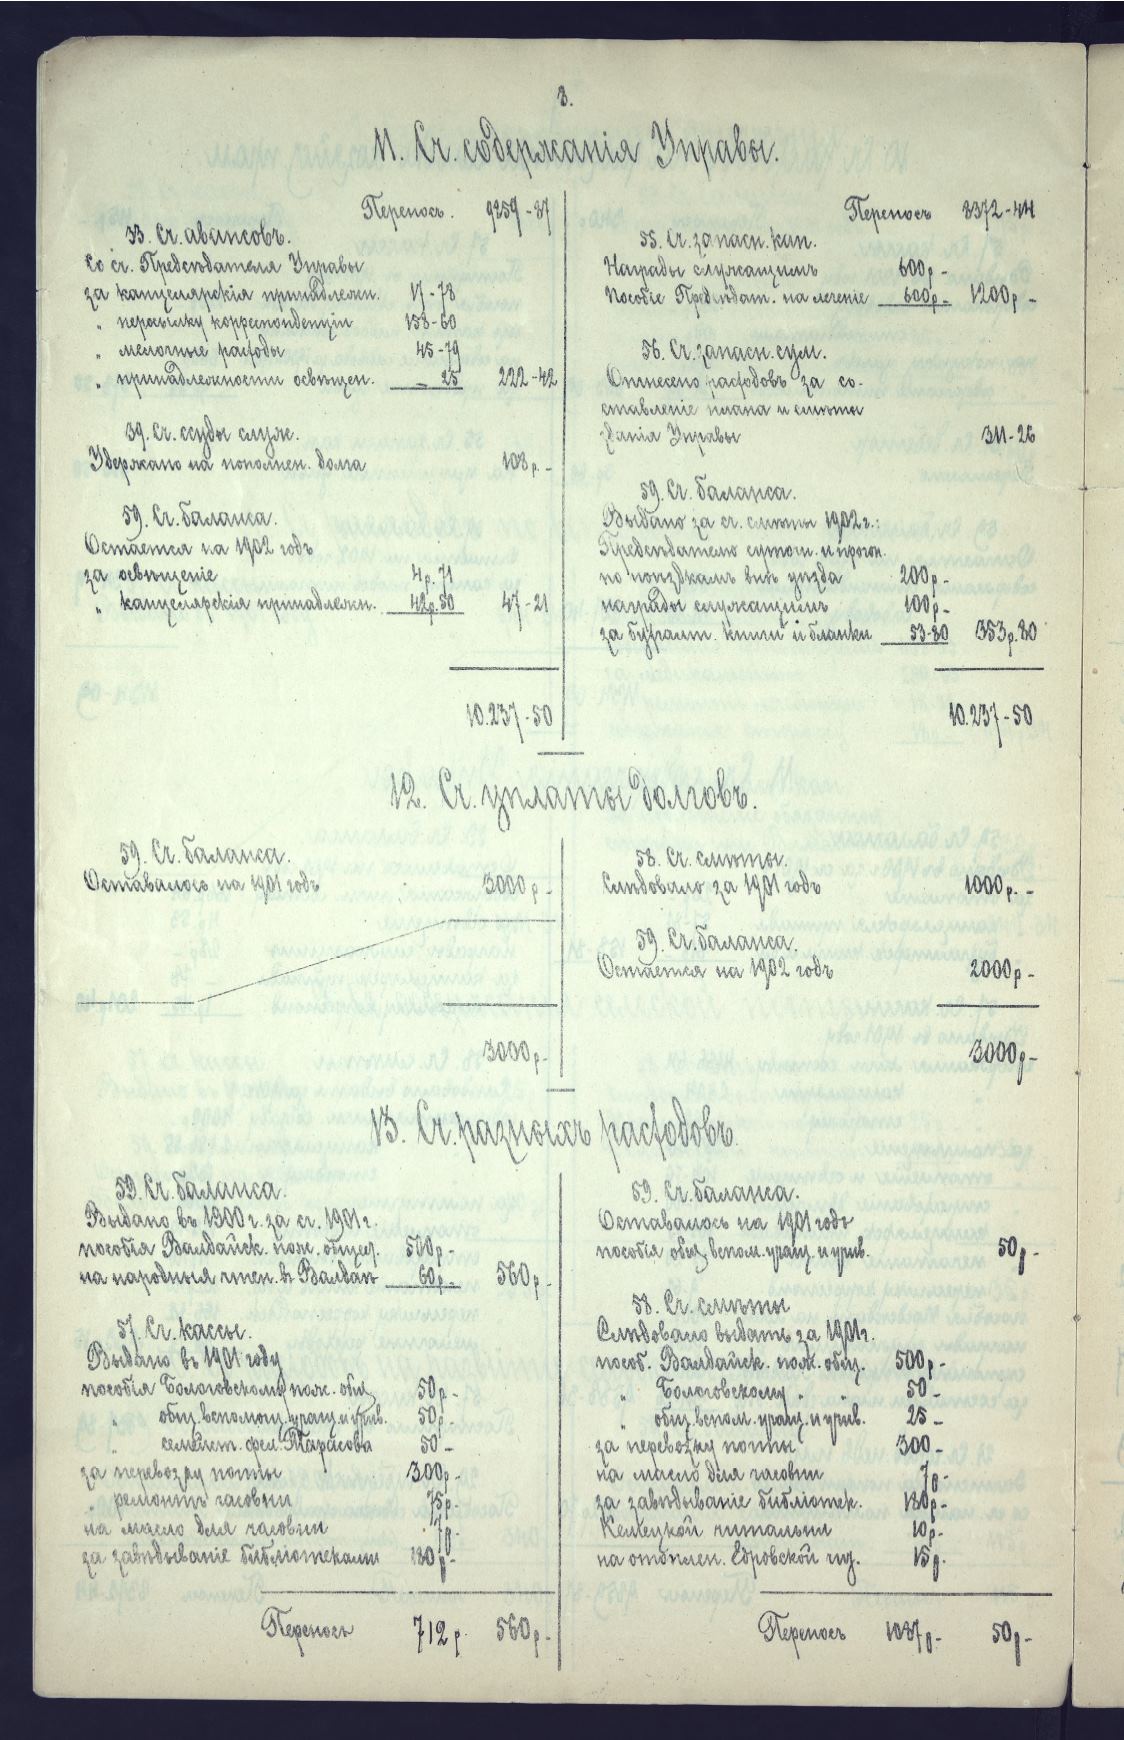 8.
11. Сч. содержанія Управы.
Переносъ. 9859-87
33. Сч. авансовъ.
Со сч. Предсѣдателя Управы
за канцелярскія принадлежн. 17-78
" пересылку корреспонденціи 158-60
" мелочные расходы 45-79
" принадлежности освѣщен. _ 25 222-42
39. Сч. ссуды служ.
Удержано на пополнен. долга 108 р. -
59. Сч. баланса.
Остается на 1902 годъ
за освѣщеніе 4 р. 71
" канцелярскія принадлежн. 42 р. 50 47-21
10.237-50
Переносъ 8372-44
55. Сч. запасн. кап.
Награды служащимъ 600 р -
Пособіе Предсѣдат. на леченіе 600 р - 1200 р -
56. Сч. запасн. сум.
Отнесено расходовъ за со-
ставленіе плана и смѣты
зданія Управы 311-26
59. Сч. баланса.
Выдано за сч. смѣты 1902 г.:
Предсѣдателю суточн. и прогон.
по поѣздкамъ внѣ уѣзда 200 р -
награды служащимъ 100 р -
за бухгалт. книги и бланки 53-80 353 р. 80
10.237-50
12. Сч. уплаты долговъ.
59. Сч. баланса.
Оставалось на 1901 годъ 3000 р -
3000 р -
58. Сч. смѣты.
Слѣдовало за 1901 годъ 1000 р. -
59. Сч. баланса.
Остается на 1902 годъ 2000 р -
3000 р -
13. Сч. разныхъ расходовъ.
59. Сч. баланса.
Выдано въ 1900 г. за сч. 1901 г.
пособія Валдайск. пож. общес. 500 р -
на народныя чтен. въ Валдаѣ 60 р - 560 р -
57. Сч. кассы.
Выдано въ 1901 году
пособія Бологовскому пож. общ. 50 р -
" общ. вспомощ. учащ. и учив. 50 р -
" семейст. фел. Тарасова 50 -
за перевозку почты 300 р -
" ремонтъ часовни 75 р -
на масло для часовни 7 р -
за завѣдываніе библіотеками 180 р -
Переносъ 712 р. 560 р -
59. Сч. баланса.
Оставалось на 1901 годъ
пособія общ. вспом. учащ. и учив. 50 р -
58. Сч. смѣты
Слѣдовало выдать за 1901 г.
пособ. Валдайск. пож. общ. 500 р -
" Бологовскому " " 50 -
" общ. вспом. учащ. и учив. 25 -
за перевозку почты 300 -
на масло для часовни 7 р -
за завѣдываніе библіотек. 180 р -
Келецкой читальни 10 р -
на отоплен. Едровской чт. 15 р -
Переносъ 1087 р - 50 р -